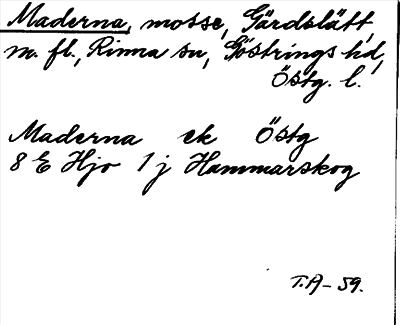 Maderna, mosse, Gärdslätt,
m. fl., Rinna sn, Göstrings hd,
Östg. l.
Maderna ek Östg
8 E Hjo 1 j Hammarskog
T.A-59.